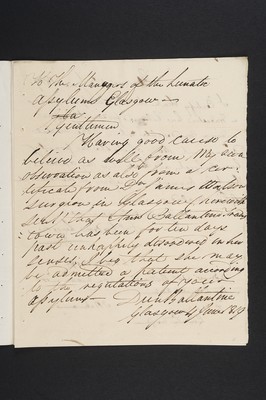 To the Managers of the Lunatic
Asylum Glasgow
Gentlemen
Having good cause to
believe as well from my own
observation as also from a cer-
tificate from James Watson
Surgeon in Glasgow herewith
sent that Ballantine
has been for ten days
past unhappily disordered in her
senses, I beg that she may
be admitted a patient according
to the regulations of your
asylum
Ballantine
Glasgow June